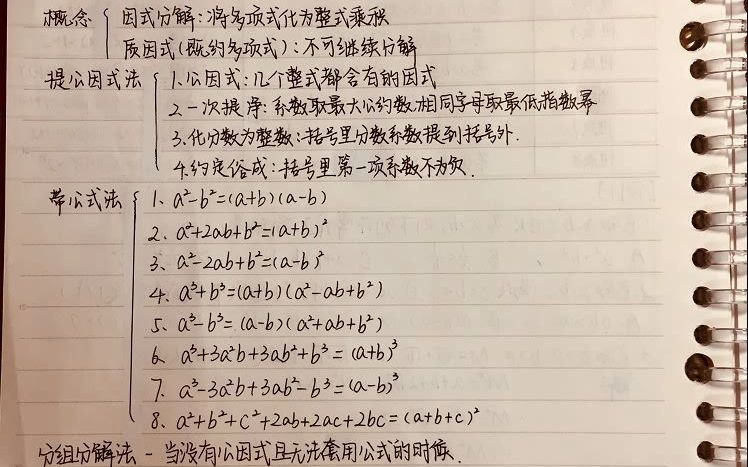 概念 { 因式分解:将多项式化为整式乘积
质因式(既约多项式):不可继续分解
提公因式法 { 1.公因式:几个整式都含有的因式
2.一次提净:系数取最大公约数,相同字母取最低指数幂
3.化分数为整数:括号里分数系数提到括号外.
4.约定俗成:括号里第一项系数不为负.
带公式法 { 1. a²-b²=(a+b)(a-b)
2. a²+2ab+b²=(a+b)²
3. a²-2ab+b²=(a-b)²
4. a³+b³=(a+b)(a²-ab+b²)
5. a³-b³=(a-b)(a²+ab+b²)
6. a³+3a²b+3ab²+b³=(a+b)³
7. a³-3a²b+3ab²-b³=(a-b)³
8. a²+b²+c²+2ab+2ac+2bc=(a+b+c)²
分组分解法-当没有公因式且无法套用公式的时候.